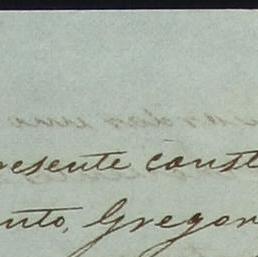 resente const
nto, Gregor